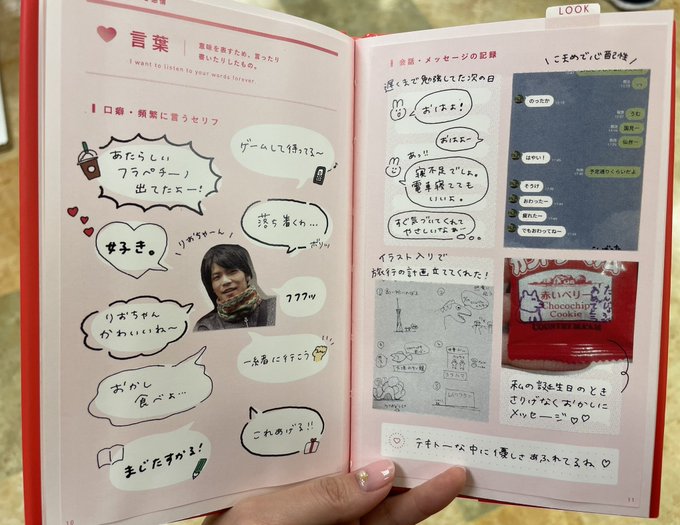 言葉
意味を表すため、言ったり
書いたりしたもの。
I want to listen to your words forever
口癖・頻繁に言うセリフ
あたらしい
フラペチーノ
出てたよー!
ゲームして待ってる〜
好き。
落ち着くわ...
ボリッ
りおちゃーん
りおちゃん
かわいいね〜
フフフッ
一緒に行こう
おかし
食べよ...
これあげる!!
まじたすかる!
10
LOOK
会話・メッセージの記録
遅くまで勉強してた次の日
おはよ!
おはよー
あっ!!
寝不足でしょ。
電車寝てても
いいよ。
すぐ気づいてくれて
やさしいなぁー
こまめで心配性
のったか
うむ
国見ー
仙台ー
はやい!
予定通りくらいだよ
そうけ
おわったー
疲れたー
でもおわってねー
イラスト入りで
旅行の計画立ててくれた!
赤いベリー
Chocochip
Cookie
COUNTRY MA'AM
私の誕生日のとき
さりげなくおかしに
メッセージ♡♡
テキトーな中に優しさあふれてるね♡
11